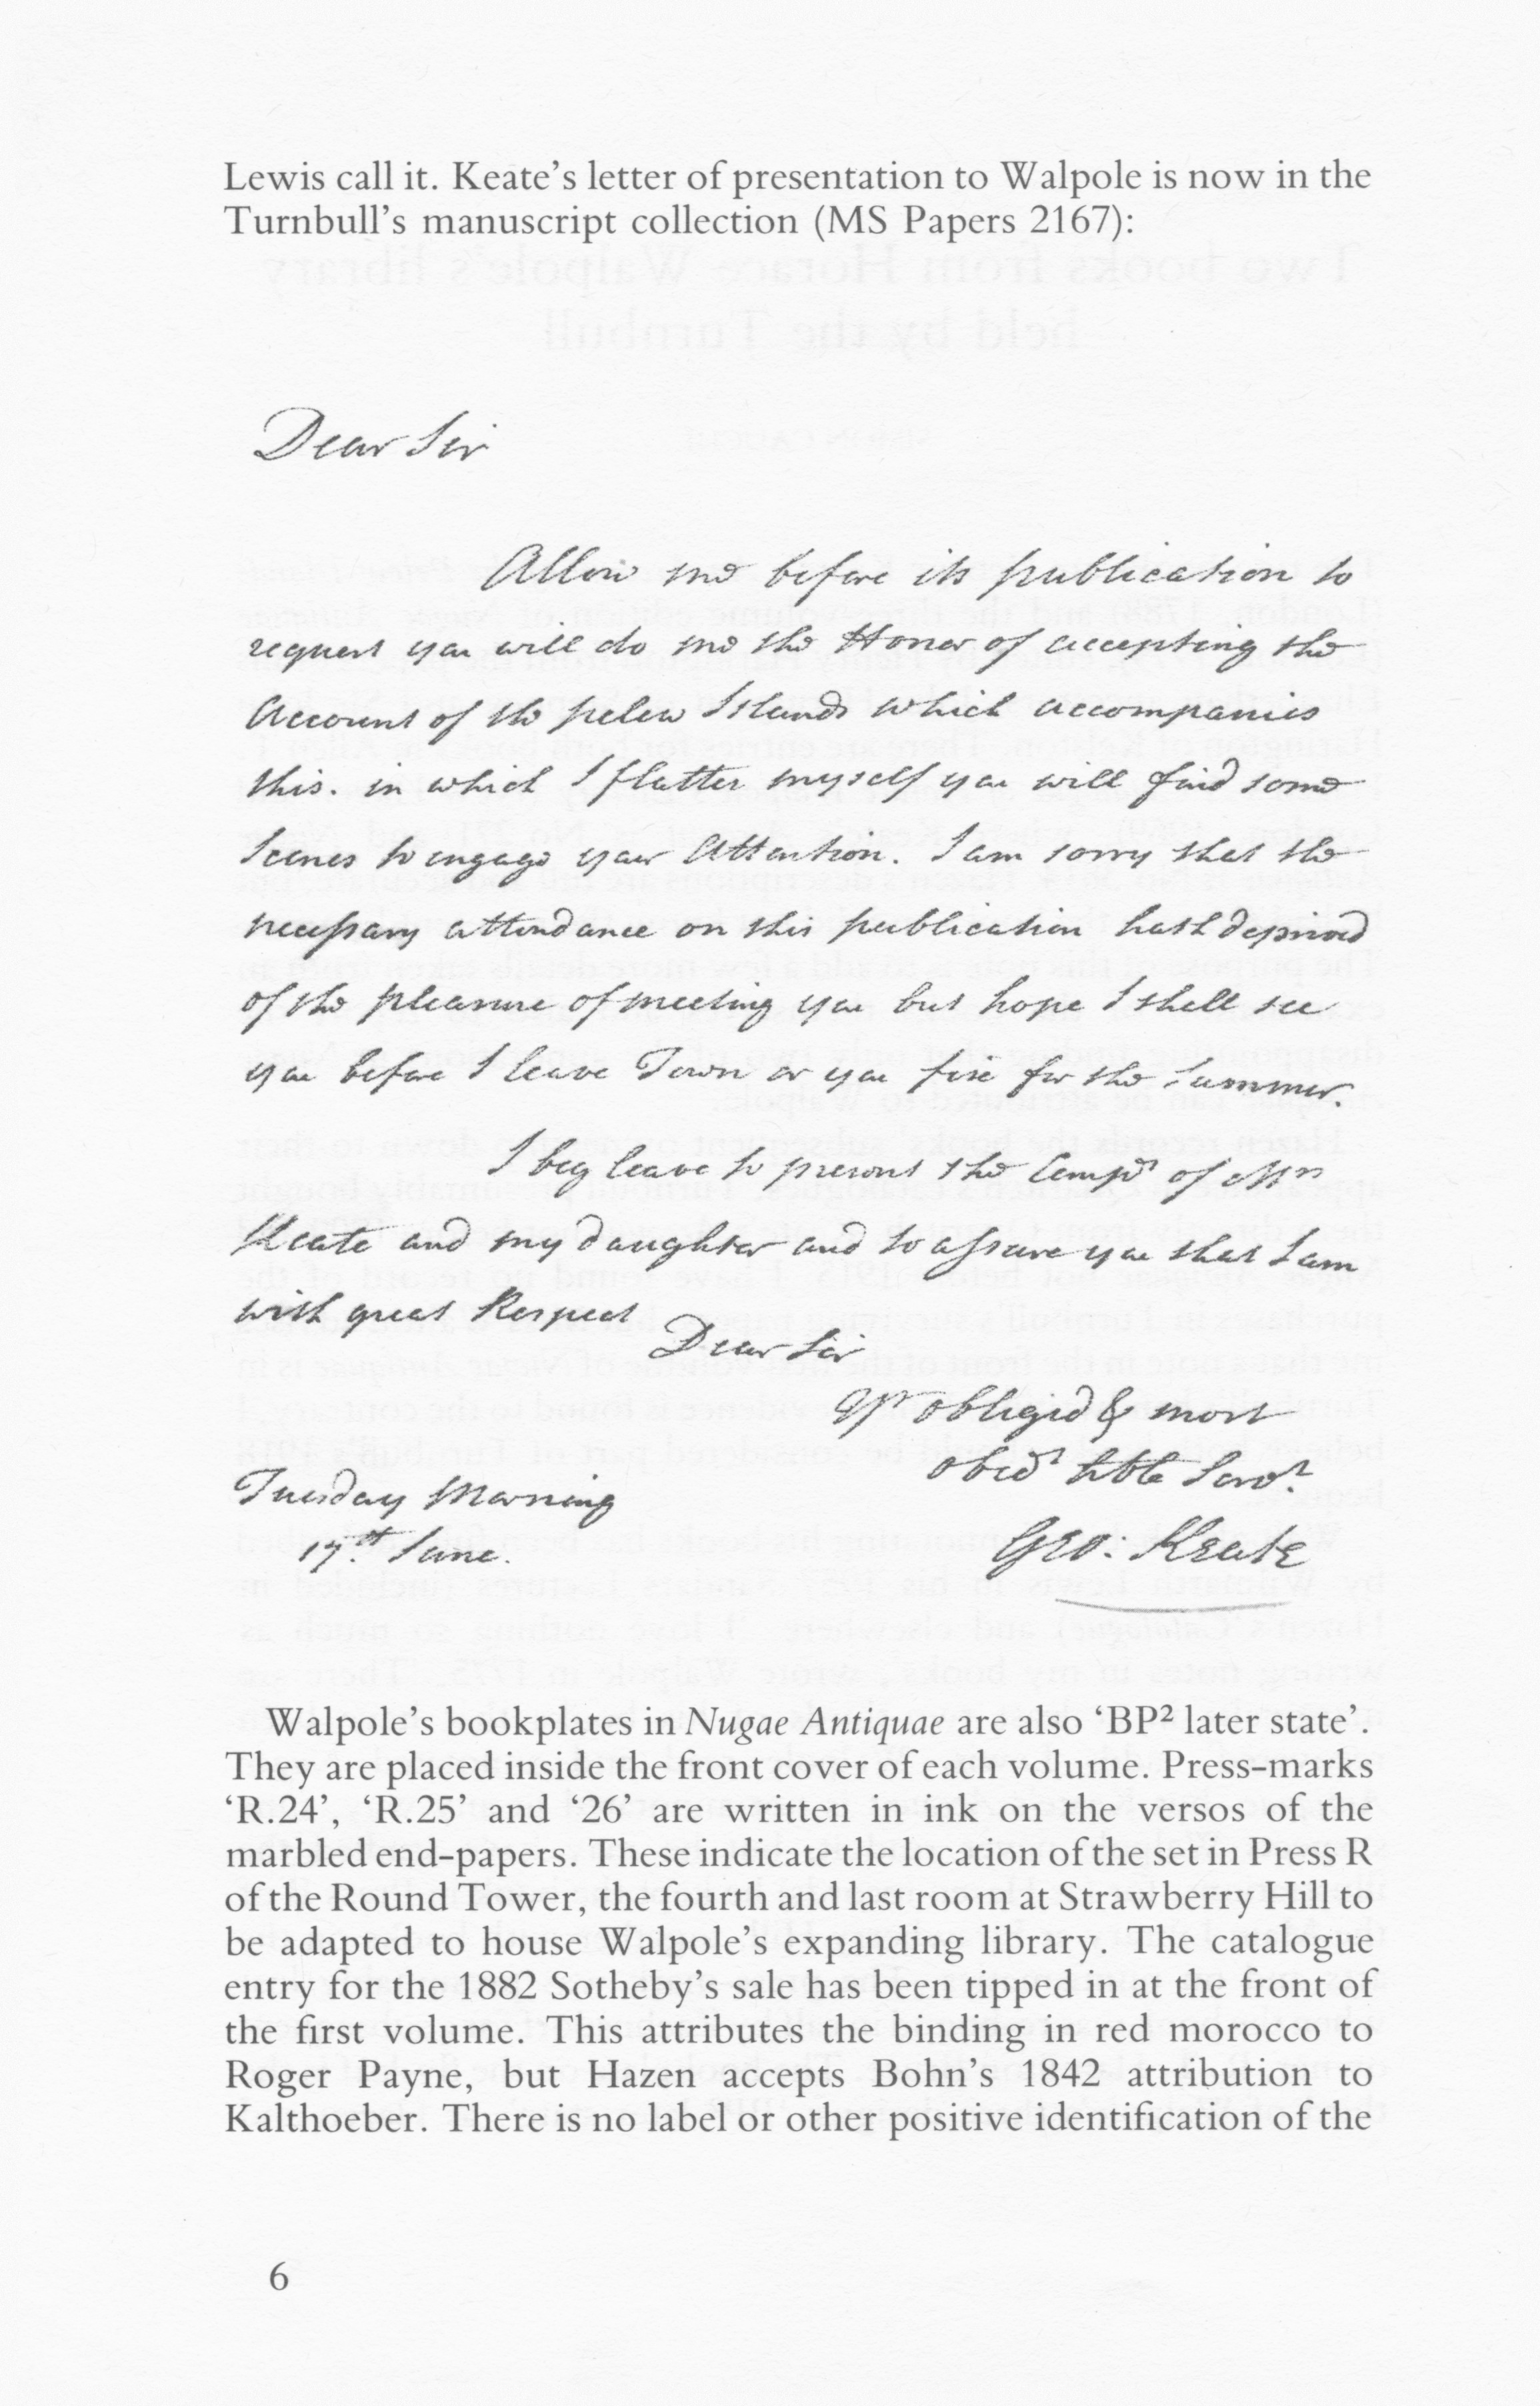 Lewis call it. Keate's letter of presentation to Walpole is now in the
Turnbull's manuscript collection (MS Papers 2167):
Dear Sir
Allow me before its publication to
request you will do me the Honor of accepting the
Account of the pelew Islands which accompanies
this. in which I flatter myself you will find some
Scenes to engage your Attention. I am sorry that the
necessary attendance on this publication hath deprived
of the pleasure of meeting you but hope I shall see
you before I leave Town or you fix for the Summer.
I beg leave to present the Compts of Mrs
Keate and my daughter and to assure you that I am
with great Respect
Dear Sir
Yr obligid & most
obedt hble Servt
Tuesday Morning
17th June.
Geo: Keate
Walpole's bookplates in Nugae Antiquae are also ‘BP² later state’.
They are placed inside the front cover of each volume. Press-marks
‘R.24’, ‘R.25’ and ‘26’ are written in ink on the versos of the
marbled end-papers. These indicate the location of the set in Press R
of the Round Tower, the fourth and last room at Strawberry Hill to
be adapted to house Walpole's expanding library. The catalogue
entry for the 1882 Sotheby's sale has been tipped in at the front of
the first volume. This attributes the binding in red morocco to
Roger Payne, but Hazen accepts Bohn's 1842 attribution to
Kalthoeber. There is no label or other positive identification of the
6